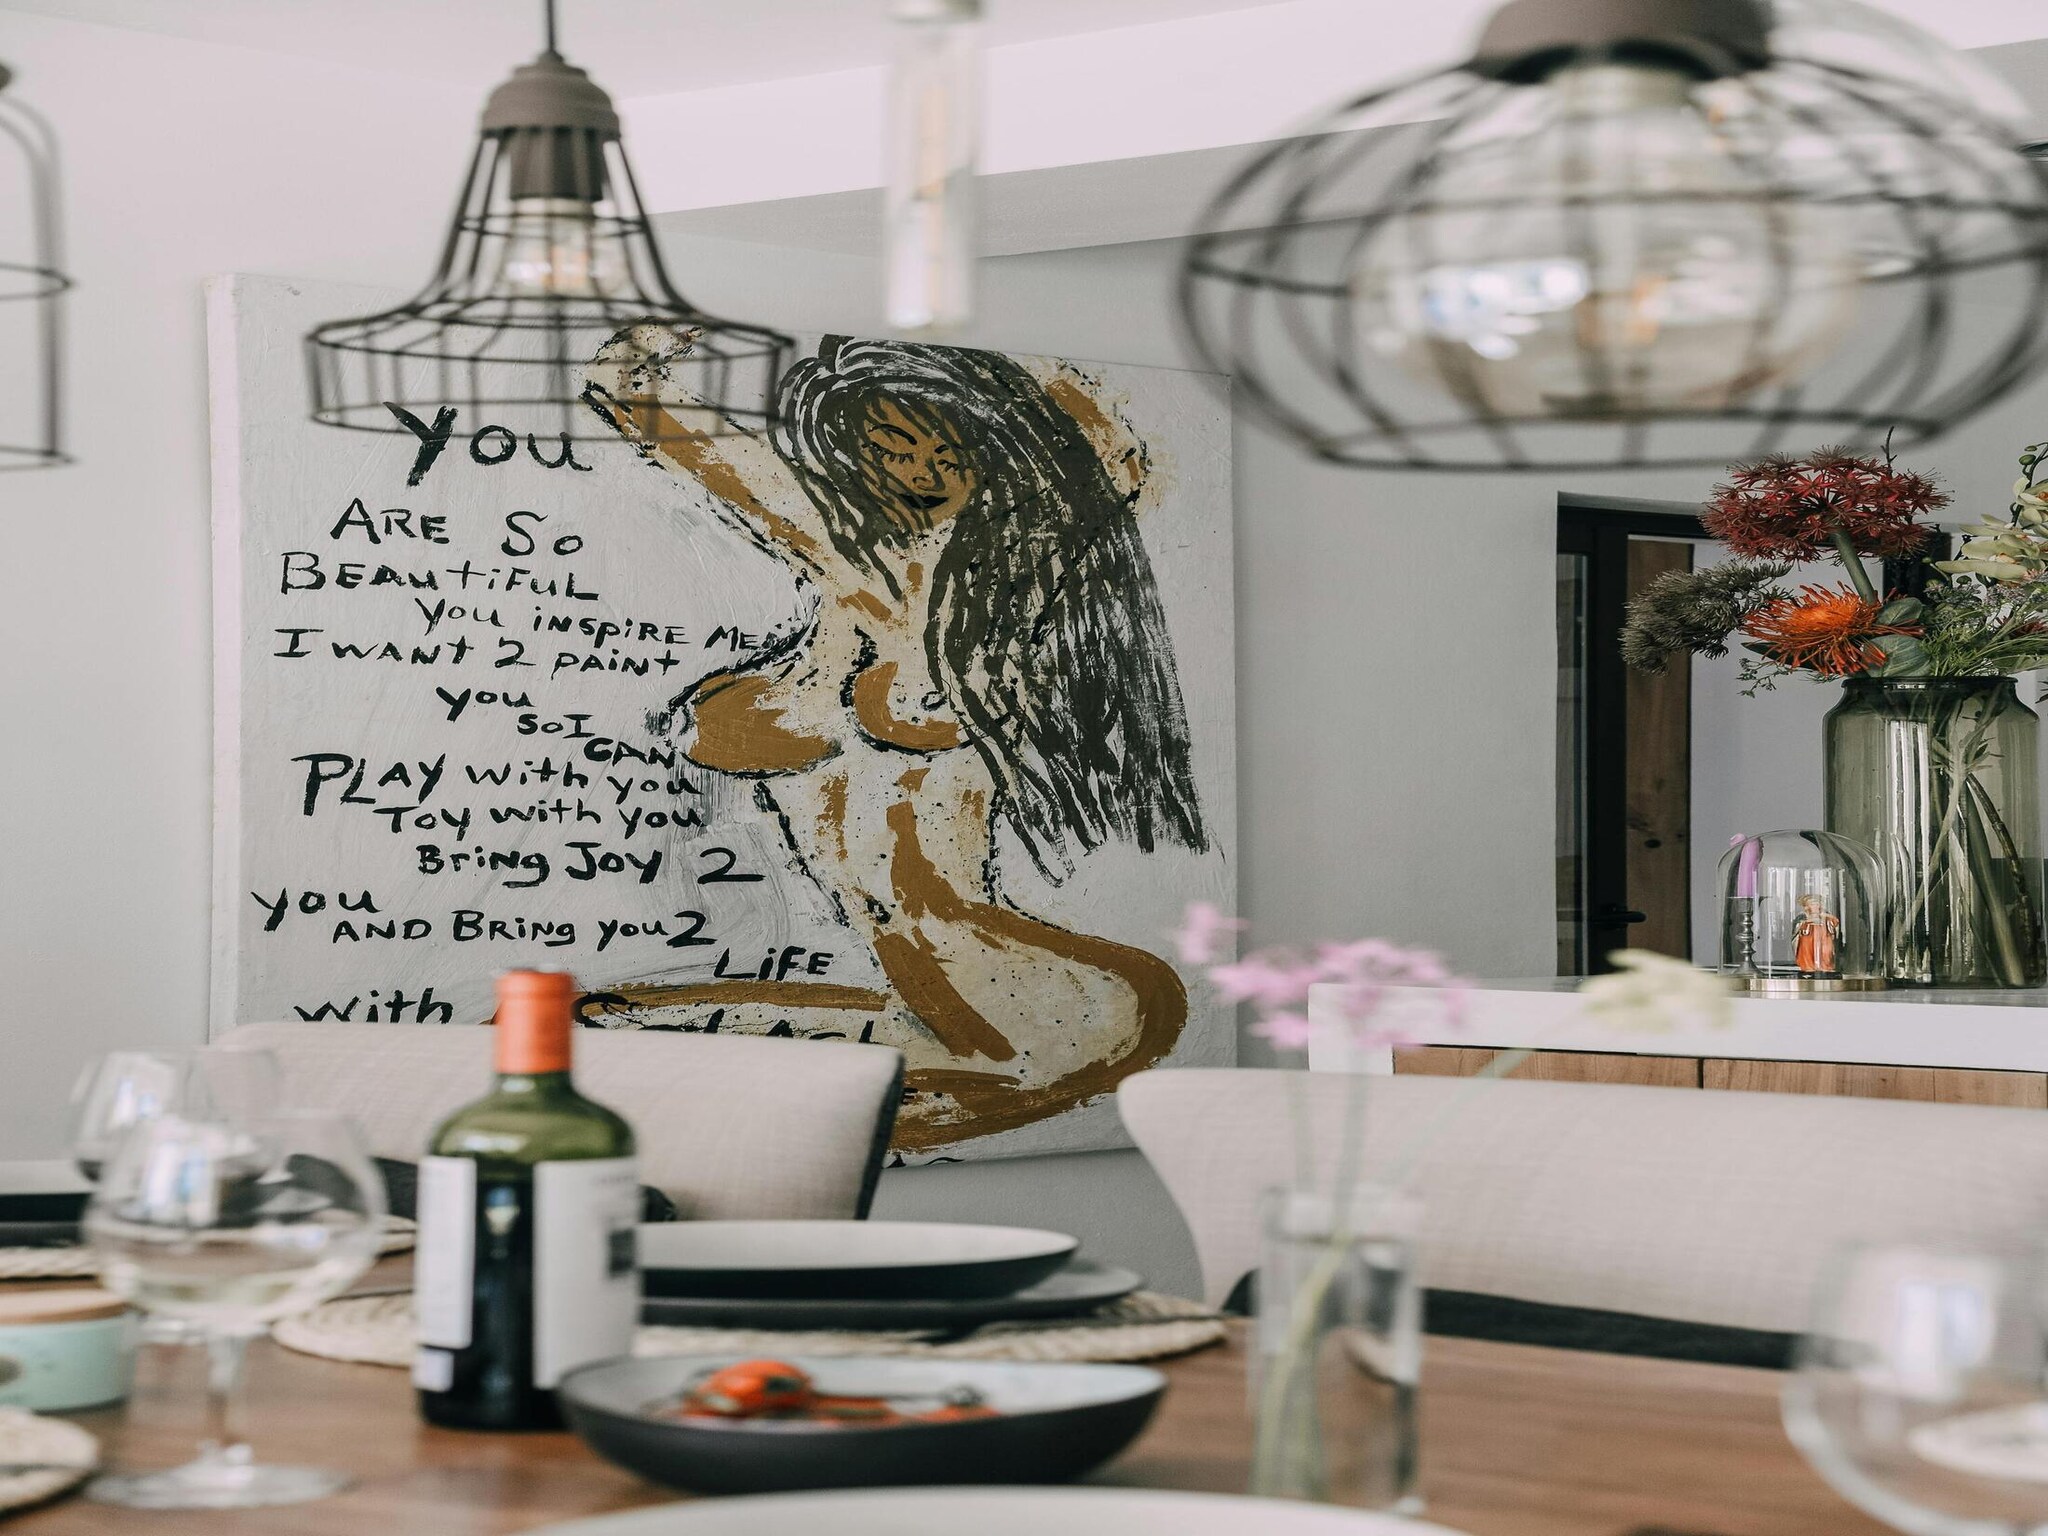 You
ARE So
BEAUtiFUL
you iNSPiRE ME
I WANt 2 PAiNt
you
SOI
CAN
PLAY with you
Toy with you
Bring Joy 2
you
AND BRiNg you 2
LiFE
with